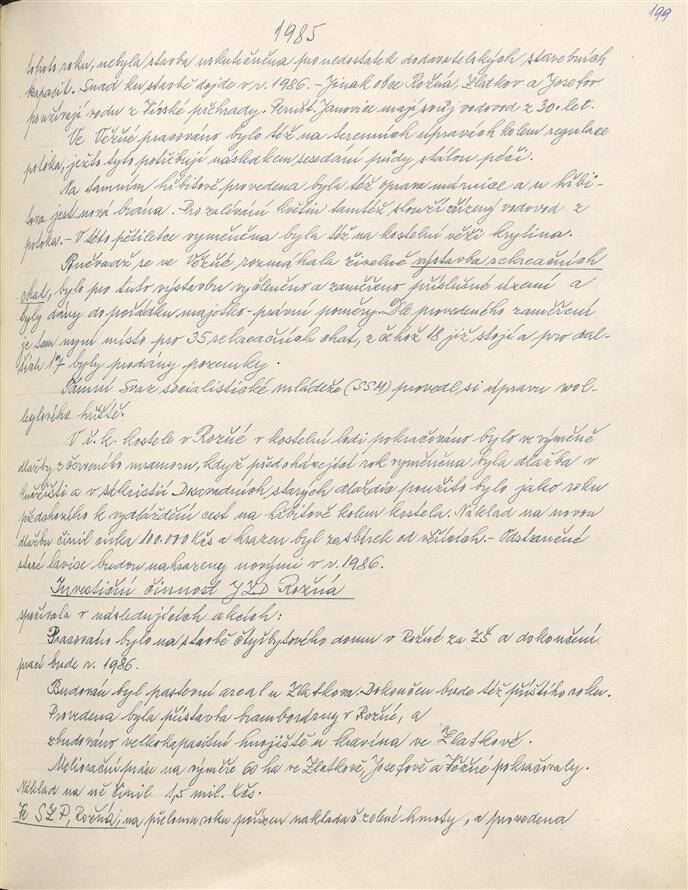 199
1985
tohoto roku, nebyla stavba uskutečněna pro nedostatek dodavatelských stavebních
kapacit. Snad ku stavbě dojde v r. 1986. – Jinak obce Rožná, Zlatkov a Josefov
používají vodu z Vírské přehrady. Pernšt. Janovice mají svůj vodovod z 30. let.
Ve Věžné pracováno bylo též na terenních úpravách kolem regulace
potoka, ježto tyto potřebují následkem sesedání půdy stálou péči.
Na tamním hřbitově provedena byla též oprava márnice a u hřbi-
tova jest nová brána. Pro zalévání květin tamtéž slouží zřízený vodovod z
potoka. – V této pětiletce vyměněna byla též na kostelní věži krytina.
Poněvadž se ve Věžné rozmáhala živelně výstavba rekreačních
chat, bylo pro tuto výstavbu vyčleněno a zaměřeno příslušné území a
byly dány do pořádku majetko-právní poměry. Dle provedeného zaměření
je tam nyní místo pro 35 rekreačních chat, z čehož 18 již stojí a pro dal-
ších 17 byly prodány pozemky.
Tamní Svaz socialistické mládeže (SSM) provedl si úpravu vol-
leybalového hřiště.
V ř. k. kostele v Rožné v kostelní lodi pokračováno bylo ve výměně
dlažby z červeného mramoru, když předcházející rok vyměněna byla dlažba v
kněžišti a v sakristii. Dosavadních starých dlaždic použito bylo jako roku
předešlého k vydláždění cest na hřbitově kolem kostela. Náklad na novou
dlažbu činil cirka 100.000 Kčs a hrazen byl ze sbírek od věřících. – Odstraněné
staré lavice budou nahrazeny novými v r. 1986.
Investiční činnost JZD Rožná
spočívala v následujících akcích:
Pracováno bylo na stavbě čtyřbytového domu v Rožné za ZŠ a dokončení
prací bude r. 1986.
Budován byl pastevní areal u Zlatkova. Dokončen bude též příštího roku.
Provedena byla přístavba bramborárny v Rožné, a
zbudováno velkokapacitní hnojiště u kravína ve Zlatkově.
Meliorační práce na výměře 60 ha ve Zlatkově, Josefově a Věžné pokračovaly.
Náklad na ně činil 1,5 mil. Kčs.
Ze SZP, Rožná, na přelomu roku pořízen nakladač zelené hmoty, a provedena